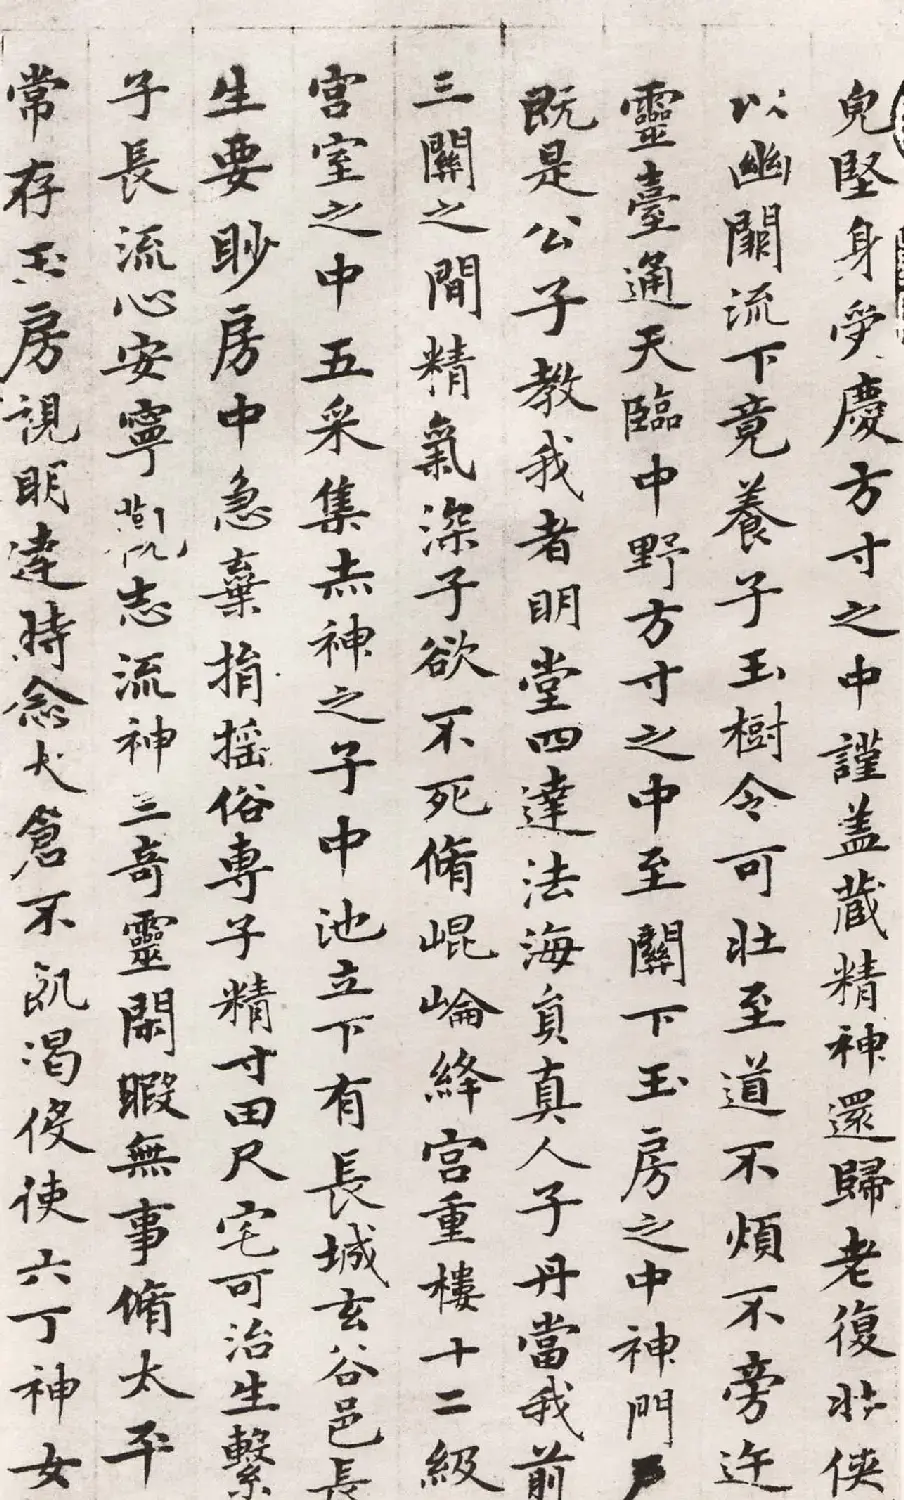 皃堅身受慶方寸之中謹盖藏精神還歸老復壮俠
以幽闕流下竟養子玉樹令可壮至道不煩不旁迕
靈臺通天臨中野方寸之中至關下玉房之中神門戶
既是公子教我者明堂四達法海員真人子丹當我前
三關之間精氣深子欲不死脩崐崘絳宮重樓十二級
宮室之中五采集赤神之子中池立下有長城玄谷邑長
生要眇房中急棄捐搖俗専子精寸田尺宅可治生繫
子長流心安寧志流神三奇靈閑暇無事脩太平
常存玉房視明達時念大倉不飢渴役使六丁神女